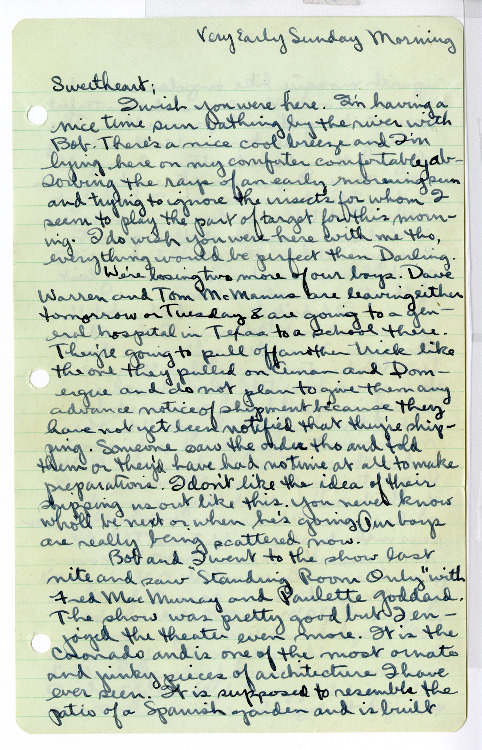 Very Early Sunday Morning
Sweetheart;
I wish you were here. I'm having a
nice time sun bathing by the river with
Bob. There's a nice cool breeze and I'm
lying here on my comforter comfortably ab-
sorbing the rays of an early morning sun
and trying to ignore the insects for whom I
seem to play the part of target for this morn-
ing. I do wish you were here with me tho,
everything would be perfect then Darling.
We're losing two more of our boys. Dave
Warren and Tom McManus are leaving either
tomorrow or Tuesday & are going to a gen-
eral hospital in Texas to a school there.
They're going to pull off another trick like
the one they pulled on and Dom-
ergue and do not plan to give them any
advance notice of shipment because they
have not yet been notified that they're ship-
ping. Someone saw the order tho and told
them or they'd have had no time at all to make
preparations. I don't like the idea of their
shipping us out like this. You never know
who'll be next or when he's going. Our boys
are really being scattered now.
Bob and I went to the show last
nite and saw "Standing Room Only" with
Fred Mac Murray and Paulette Goddard.
The show was pretty good but I en-
joyed the theater even more. It is the
Colorado and is one of the most ornate
and junky pieces of architecture I have
ever seen. It is supposed to resemble the
patio of a Spanish garden and is built